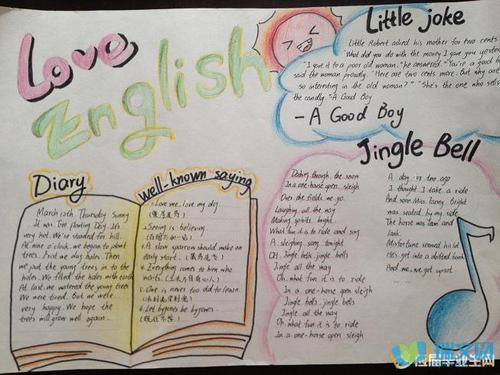 Love
English
Little joke
Little Robert asked his mother for two cents.
What did you do with the money I gave you
"I gave it to a poor old woman," he answered. "You're a good
said the woman proudly. "Here are two cents more. But why are
so interesting in the old woman?" "She's the one who sells
the candly." A Good Boy
-A Good Boy
Jingle Bell
Dashing through the snow
In a one-horse open sleigh
Over the fields we go
Laughing all the way
Making spirits bright
What fun it is to ride and sing
A sleighing song tonight
Oh Jingle bells, jingle bells
Jingle all the way
Oh what fun it is to ride
In a one-horse open sleigh
Jingle bells, jingle bells
Jingle all the way
Oh what fun it is to ride
In a one-horse open sleigh
A day or two ago
I thought I take a ride
And soon Miss Fanny Bright
was seated by my side
The horse was lean and
lank
Misfortune seemed his lot
He's got into a drifted bank
And we, we got upset
Diary
March 12th Thursday Sunny
It was Tree Planting Day. It's
very hot. We headed for hill.
At nine o'clock, we began to plant
trees. First we dug holes. Then
we put the young trees in to the
holes. We filled the holes with
At last, we watered the young trees
We were tired. But we were
very happy. We hope the
trees will grow well again.
well-known saying
1. Love me, love my dog.
(爱屋及乌)
2. Seeing is believing.
3. A slow sparrow should make an
early start.
4. Everything comes to him who
waits.
5. One is never too old to learn.
6. Let bygones be bygones.
应届毕业生网